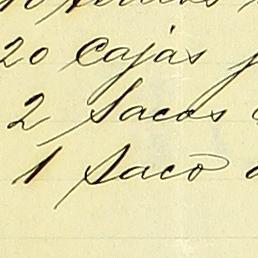 20 Cajas
2 Sacos
1 Saco